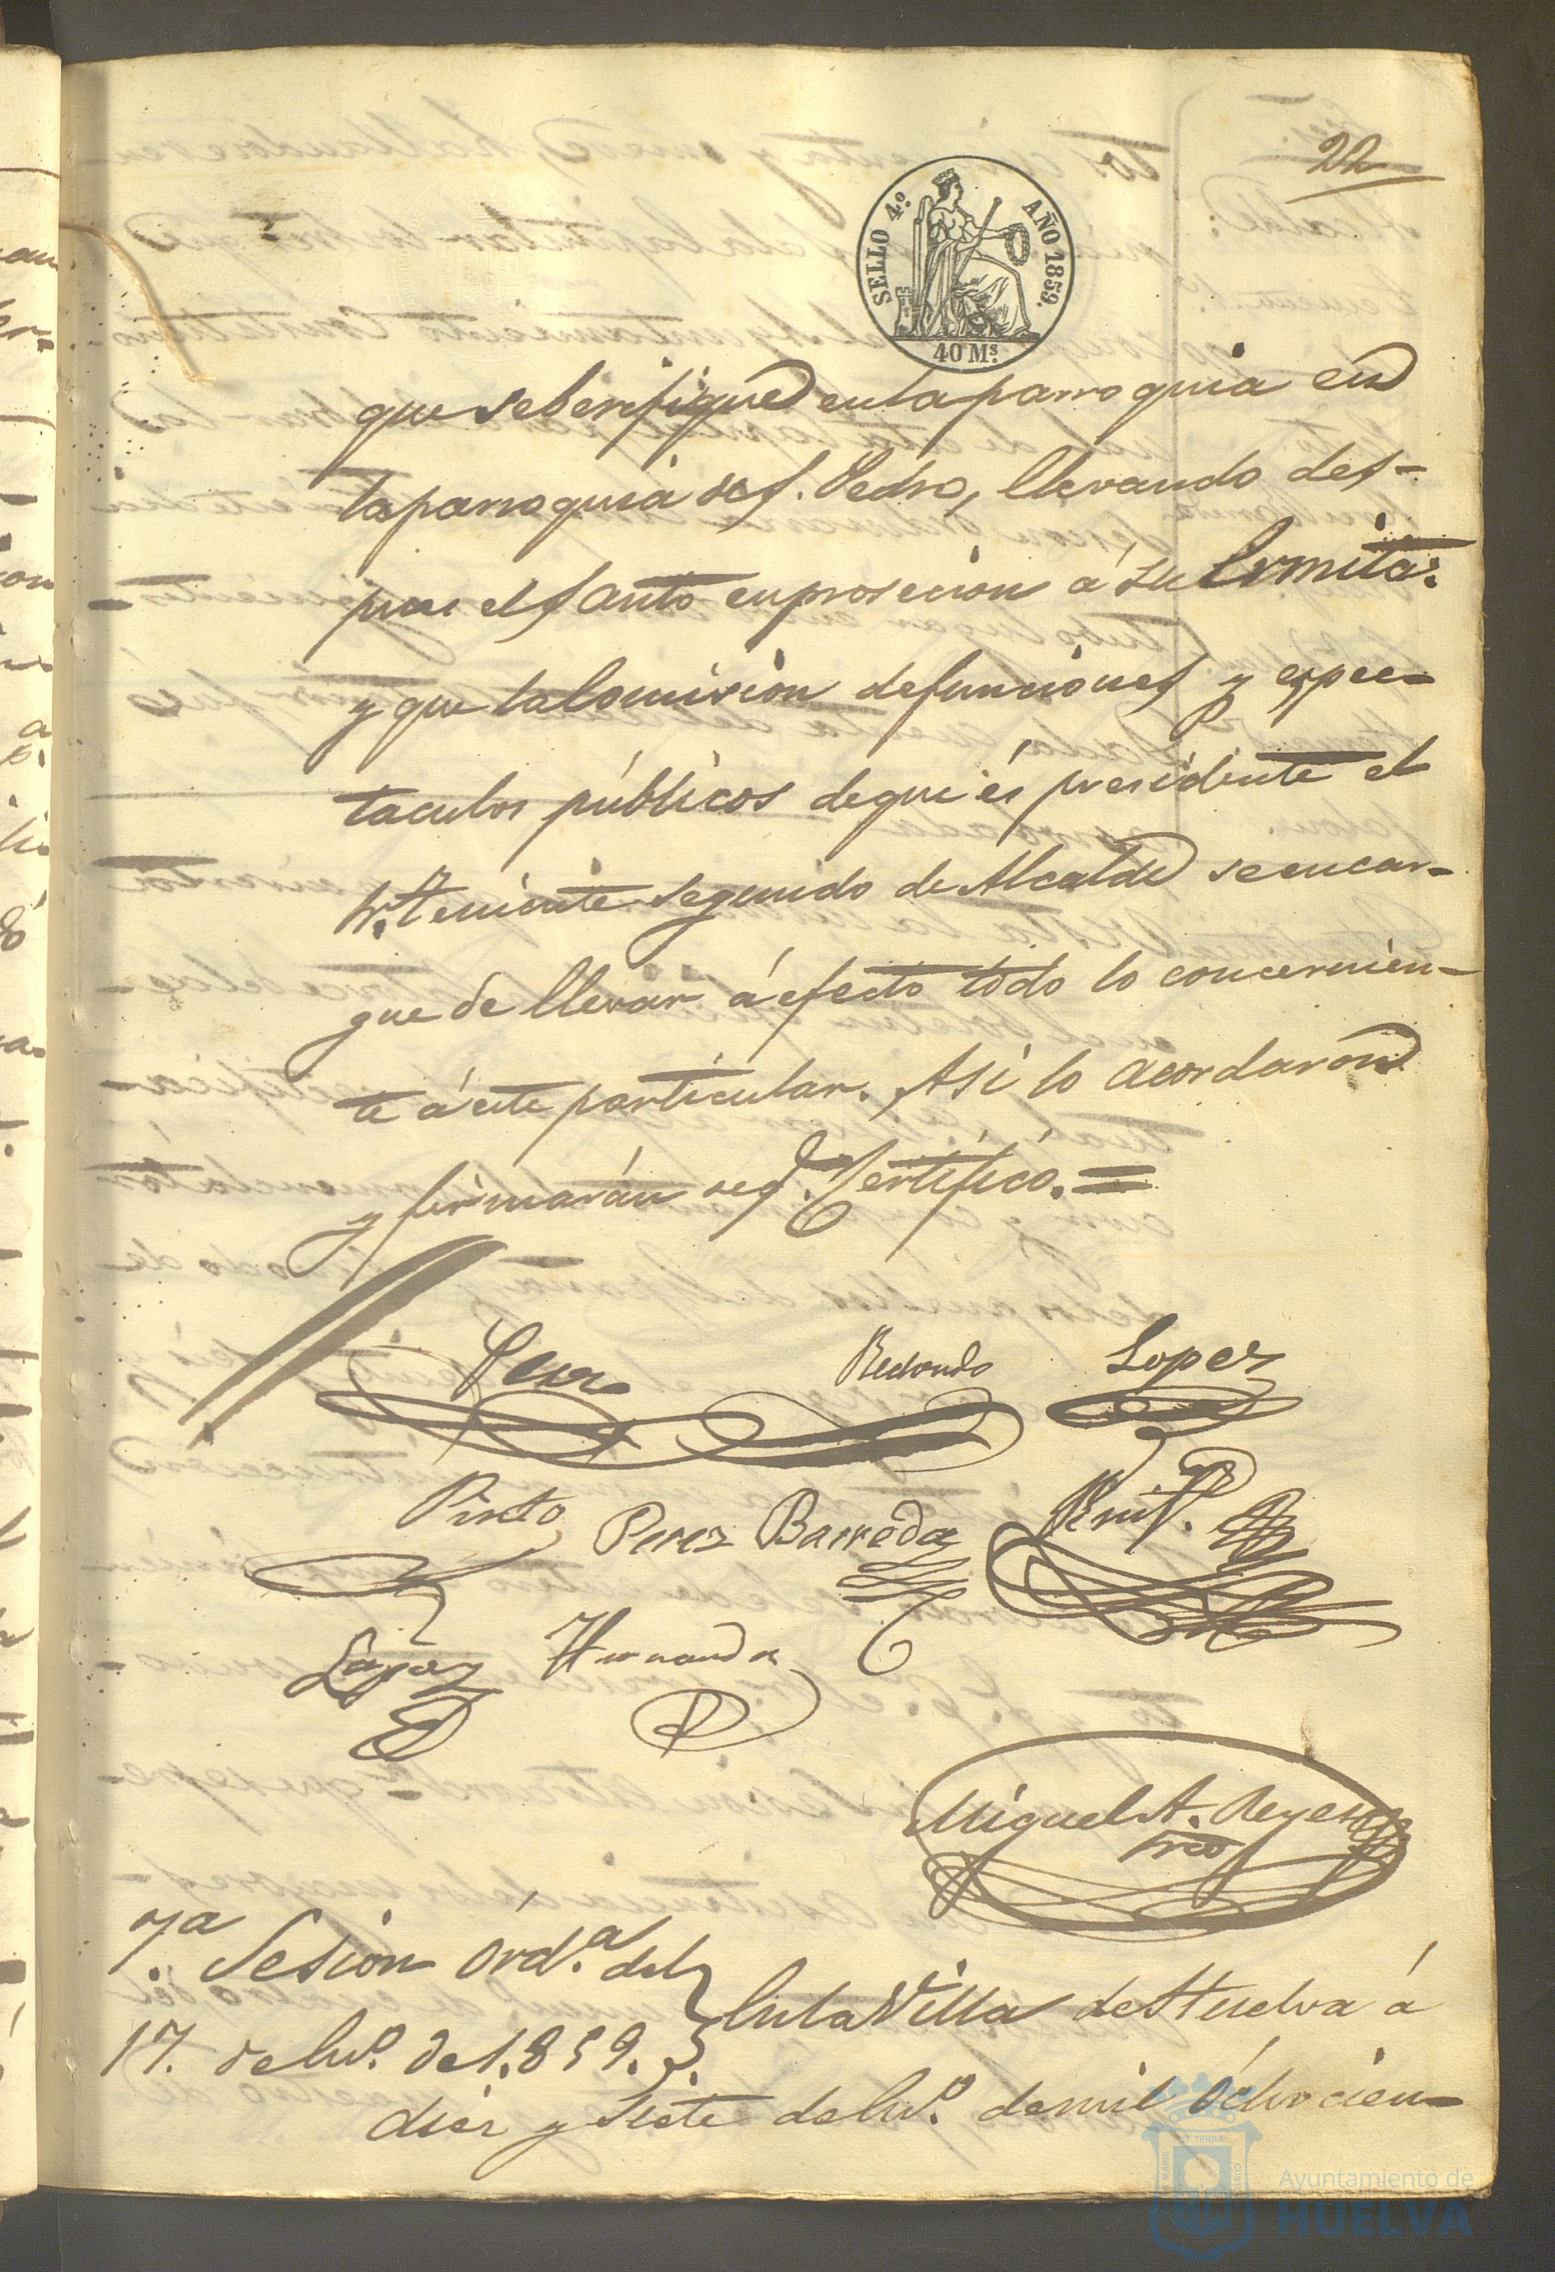 22
SELLO 4.º AÑO 1859.
40 Ms.
que se berifique en la parroquia en
la parroquia de S. Pedro, llevando des-
pues el Santo en prosecion á su Ermita:
y que la Comision de funciones y espec-
taculos públicos de que és presidente el
Sr. Teniente segundo de Alcalde se encar-
gue de llevar á efecto todo lo concernien-
te á éste particular. Asi lo acordaron
y firmarán de q. Certifico. =
Redondo Lopez
Pinto Perez Barreda Ruiz
Lopez Hernandez
Miguel A. Reyes
Srio
7.a Sesion Ord.a del
17. de En.o de 1.859.
En la Villa de Huelva á
diez y siete de En.o de mil ochocien-
Ayuntamiento de
HUELVA